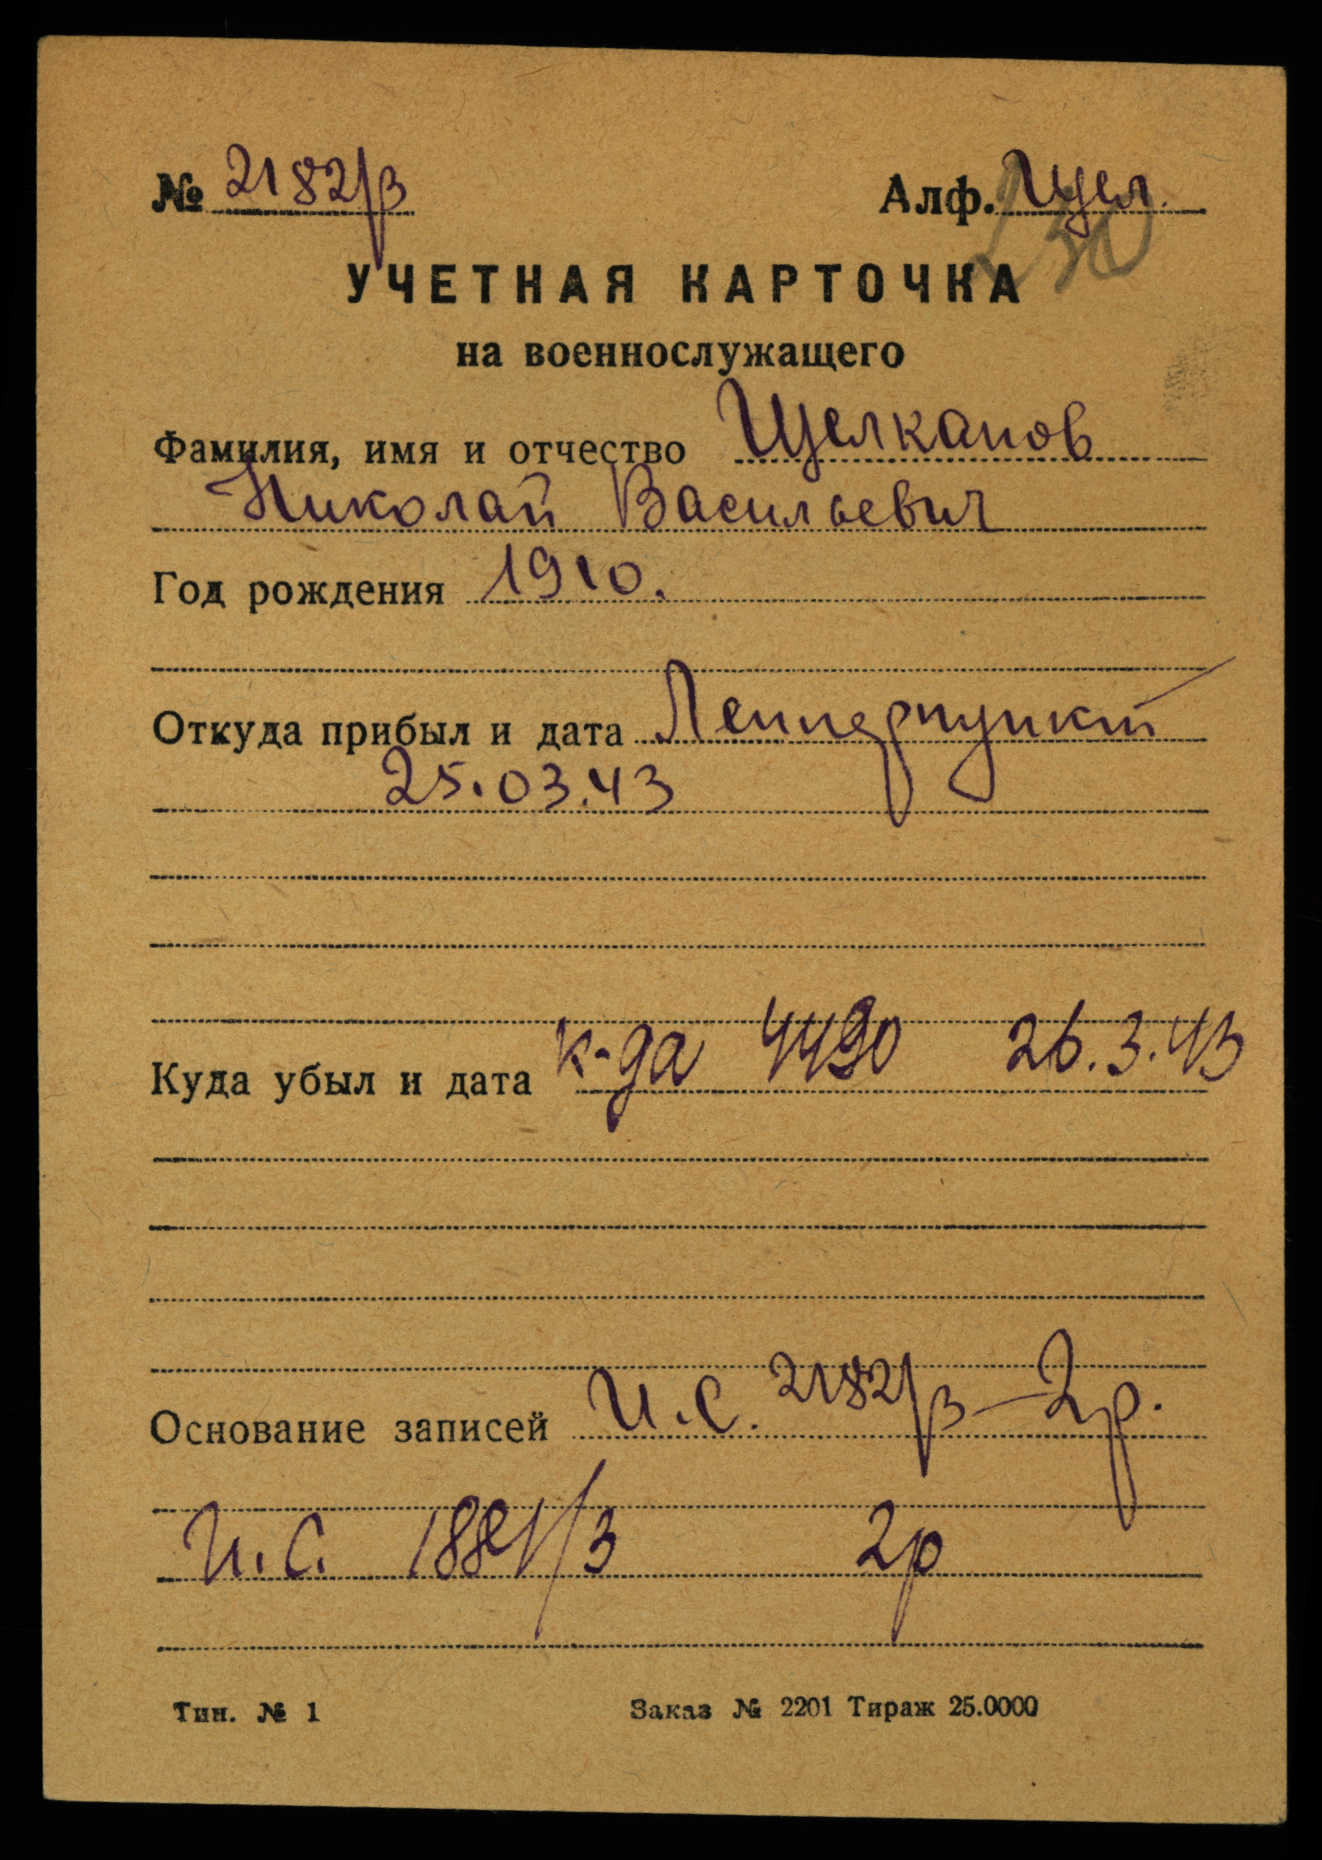 № 2182/з Алф. Щел.
230
УЧЕТНАЯ КАРТОЧКА
на военнослужащего
Фамилия, имя и отчество Щелканов
Николай Васильевич
Год рождения 1910.
Откуда прибыл и дата Ленперпункт
25.03.43
Куда убыл и дата к-да 4490 26.3.43
Основание записей И.С. 2182/з – 2р.
И.С. 1881/з 2р
Тип. № 1 Заказ № 2201 Тираж 25.0000